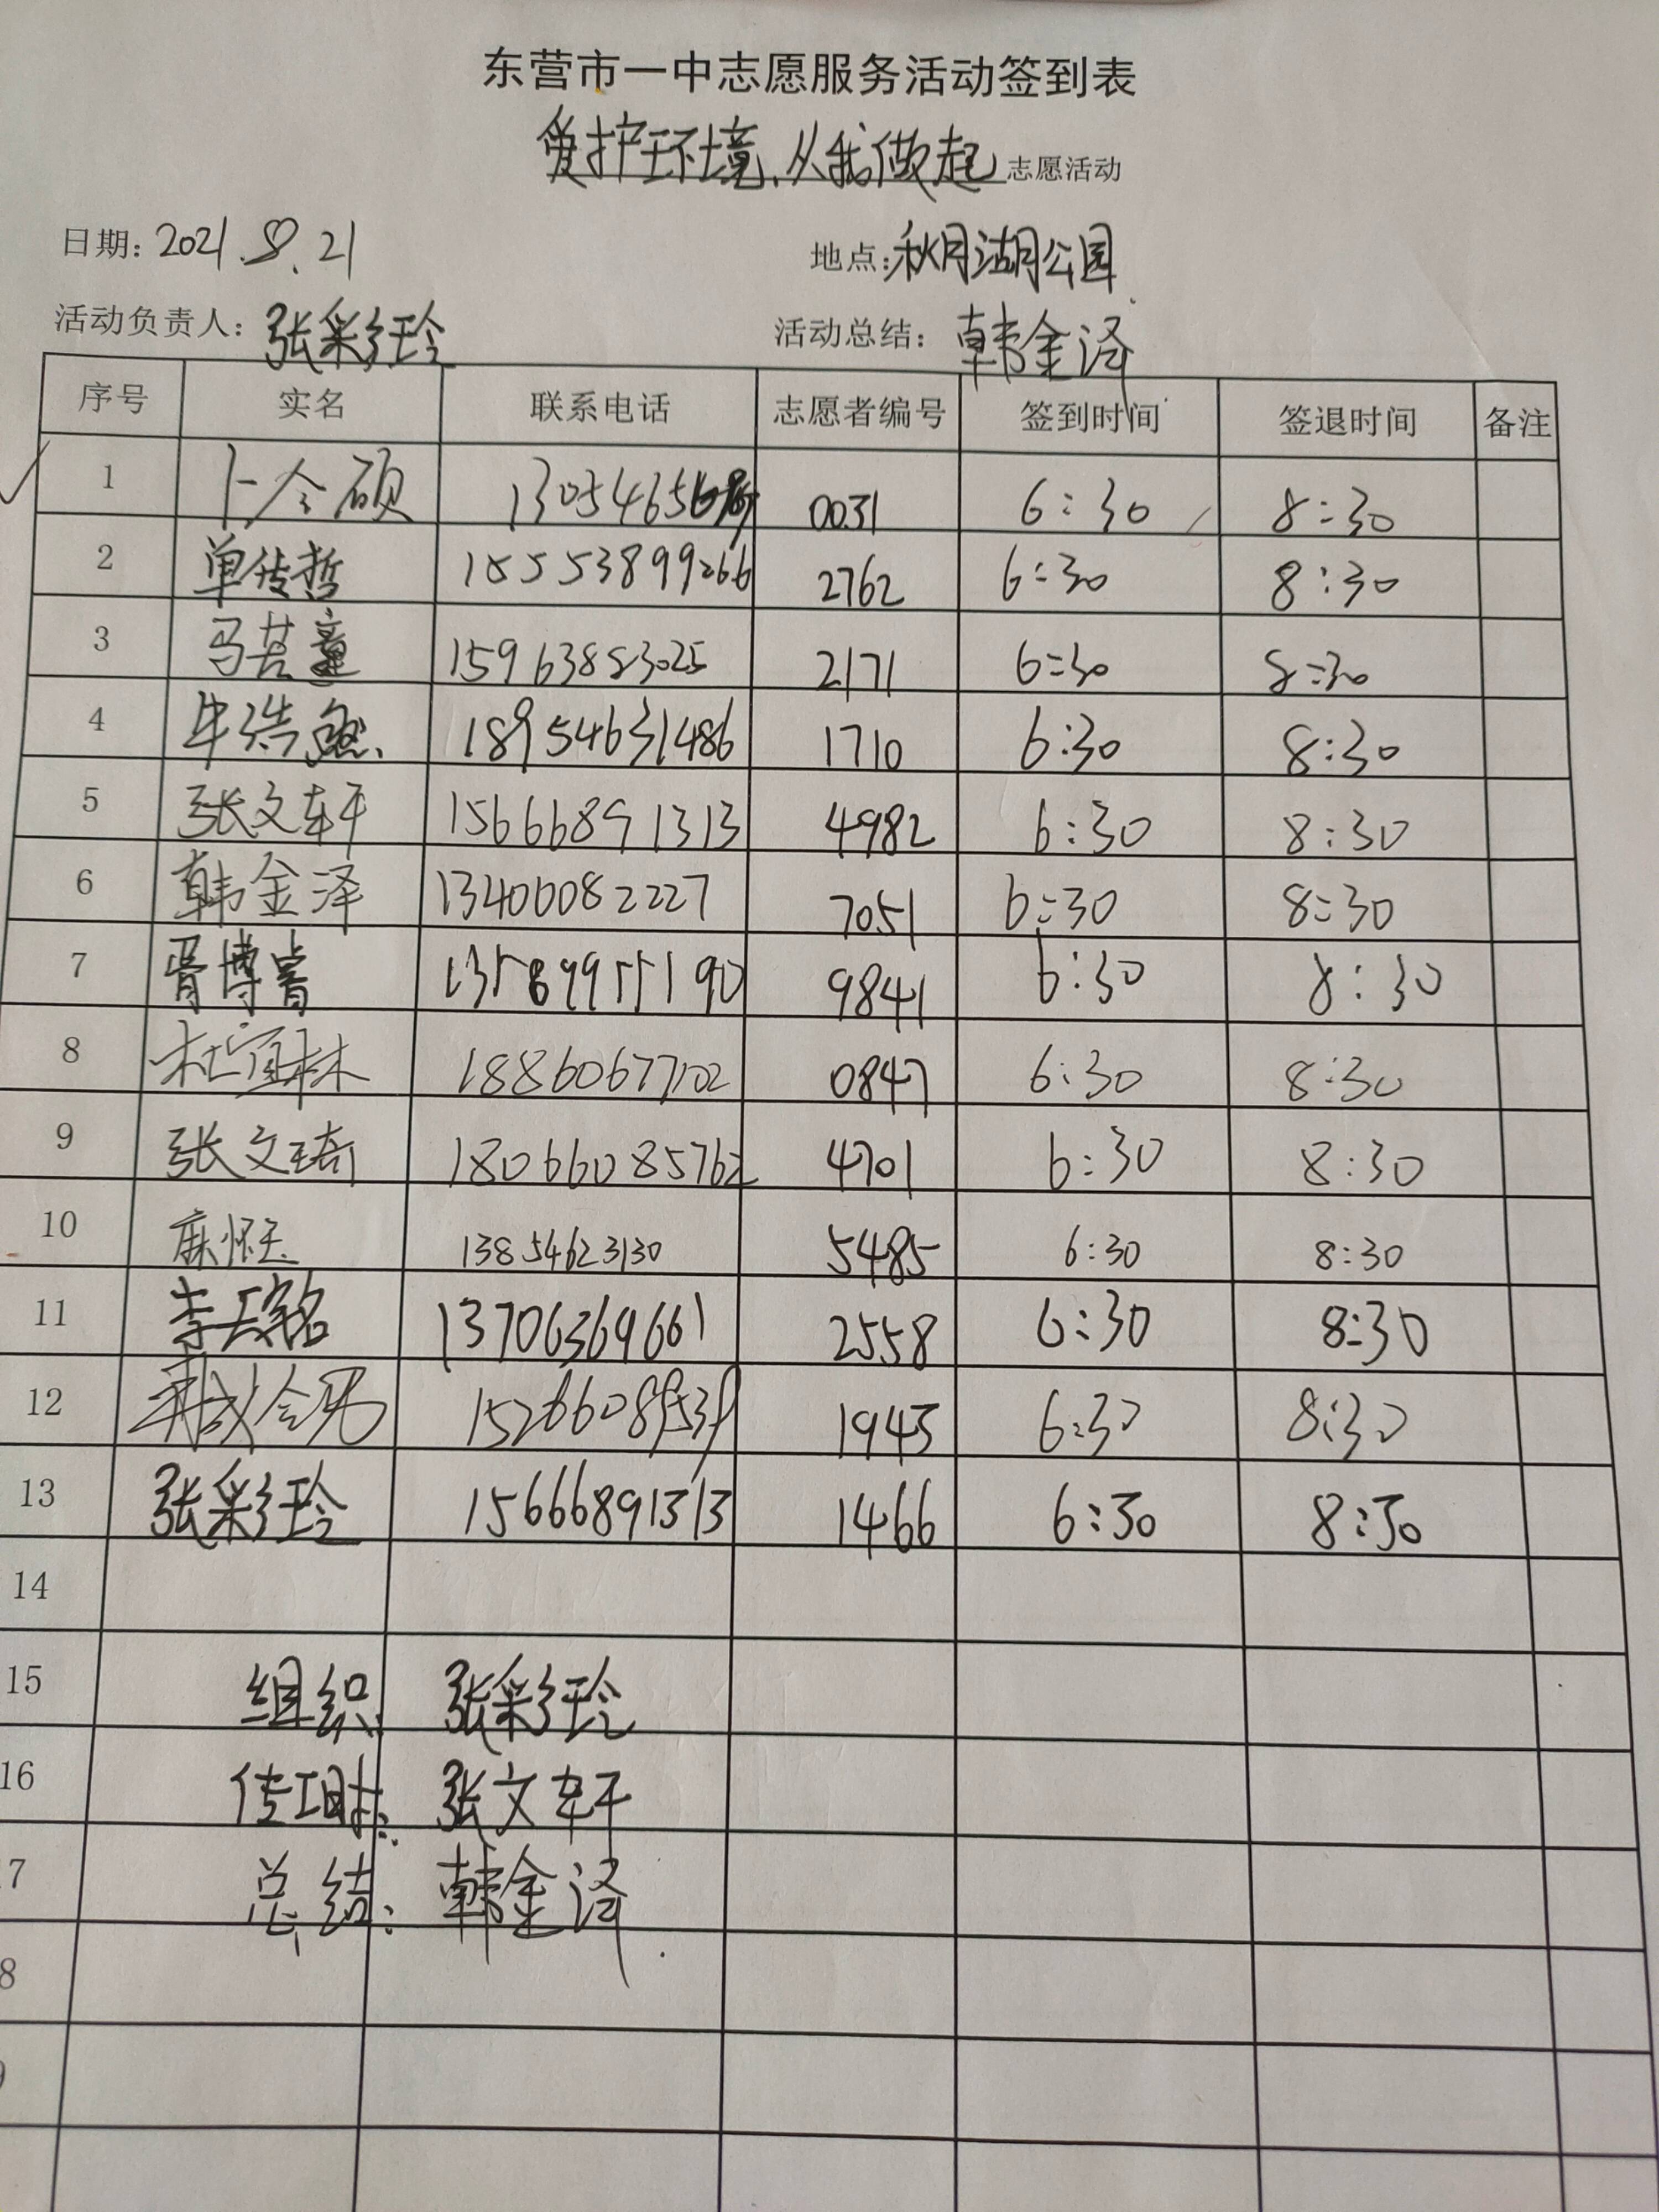 东营市一中志愿服务活动签到表
爱护环境,从我做起 志愿活动
日期: 2021.8.21 地点: 秋月湖公园
活动负责人: 张彩玲 活动总结: 韩金泽
序号 实名 联系电话 志愿者编号 签到时间 签退时间 备注
1 卜令硕 0031 6:30 8:30
2 单传哲 15553899266 2762 6:30 8:30
3 马其童 15963883025 2171 6:30 8:30
4 牛浩然 18954631486 1710 6:30 8:30
5 张文轩 15666891313 4982 6:30 8:30
6 韩金泽 13400082227 7051 6:30 8:30
7 胥博睿 13589955190 9841 6:30 8:30
8 杜宜林 18860677102 0847 6:30 8:30
9 张文琦 18066085762 4701 6:30 8:30
10 麻怀玉 13854623130 5485 6:30 8:30
11 李天铭 13706369661 2558 6:30 8:30
12 1943 6:30 8:30
13 张彩玲 15666891313 1466 6:30 8:30
14
15 组织: 张彩玲
16 传工时: 张文轩
7 总结: 韩金泽
8